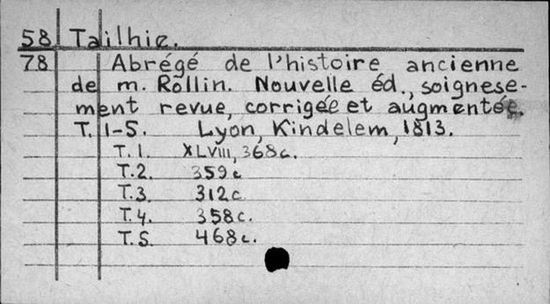 58 Tailhie.
78 Abrégé de l'histoire ancienne
de m. Rollin. Nouvelle éd., soignese-
ment revue, corrigée et augmentée.
T. 1-5. Lyon, Kindelem, 1813.
T. 1. XLVIII, 368c.
T. 2. 359c
T. 3. 312c.
T. 4. 358c.
T. 5. 468c.